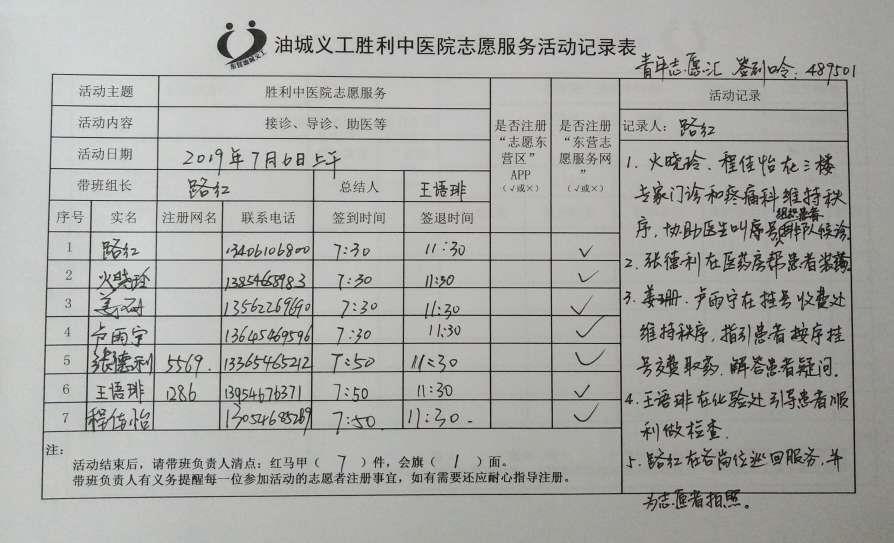 油城义工胜利中医院志愿服务活动记录表
东营油城义工
青年志愿汇 签到口令：489501
活动主题 胜利中医院志愿服务
活动内容 接诊、导诊、助医等
活动日期 2019年7月6日上午
带班组长 路红 总结人 王语琲
是否注册“志愿东营区”APP（√或×）
是否注册“东营志愿服务网”（√或×）
序号 实名 注册网名 联系电话 签到时间 签退时间
1 路红 13406106800 7:30 11:30 √
2 火晓玲 13854658983 7:30 11:30 √
3 姜珊 13562269690 7:30 11:30 √
4 卢雨宁 13645469596 7:30 11:30 √
5 张德利 5569. 13365465212 7:50 11:30 √
6 王语琲 1286 13954676371 7:50 11:30 √
7 程佳怡 7:50. 11:30. √
注：
活动结束后，请带班负责人清点：红马甲（7）件，会旗（1）面。
带班负责人有义务提醒每一位参加活动的志愿者注册事宜，如有需要还应耐心指导注册。
活动记录
记录人：路红
1. 火晓玲、程佳怡在三楼
专家门诊和疼痛科维持秩
序，协助医生叫序号，组织患者排队候诊。
2. 张德利在医药房帮患者
3. 姜珊、卢雨宁在挂号收费处
维持秩序，指引患者按序挂
号交费取药、解答患者疑问。
4. 王语琲在化验处引导患者顺
利做检查.
5. 路红在各岗位巡回服务，并
为志愿者拍照。